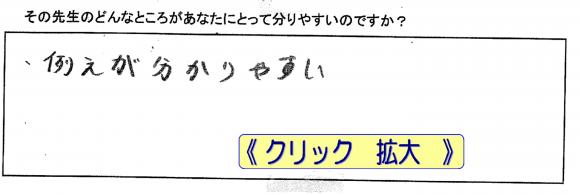 その先生のどんなところがあなたにとって分りやすいのですか？
、例えが分かりやすい
《 クリック 拡大 》